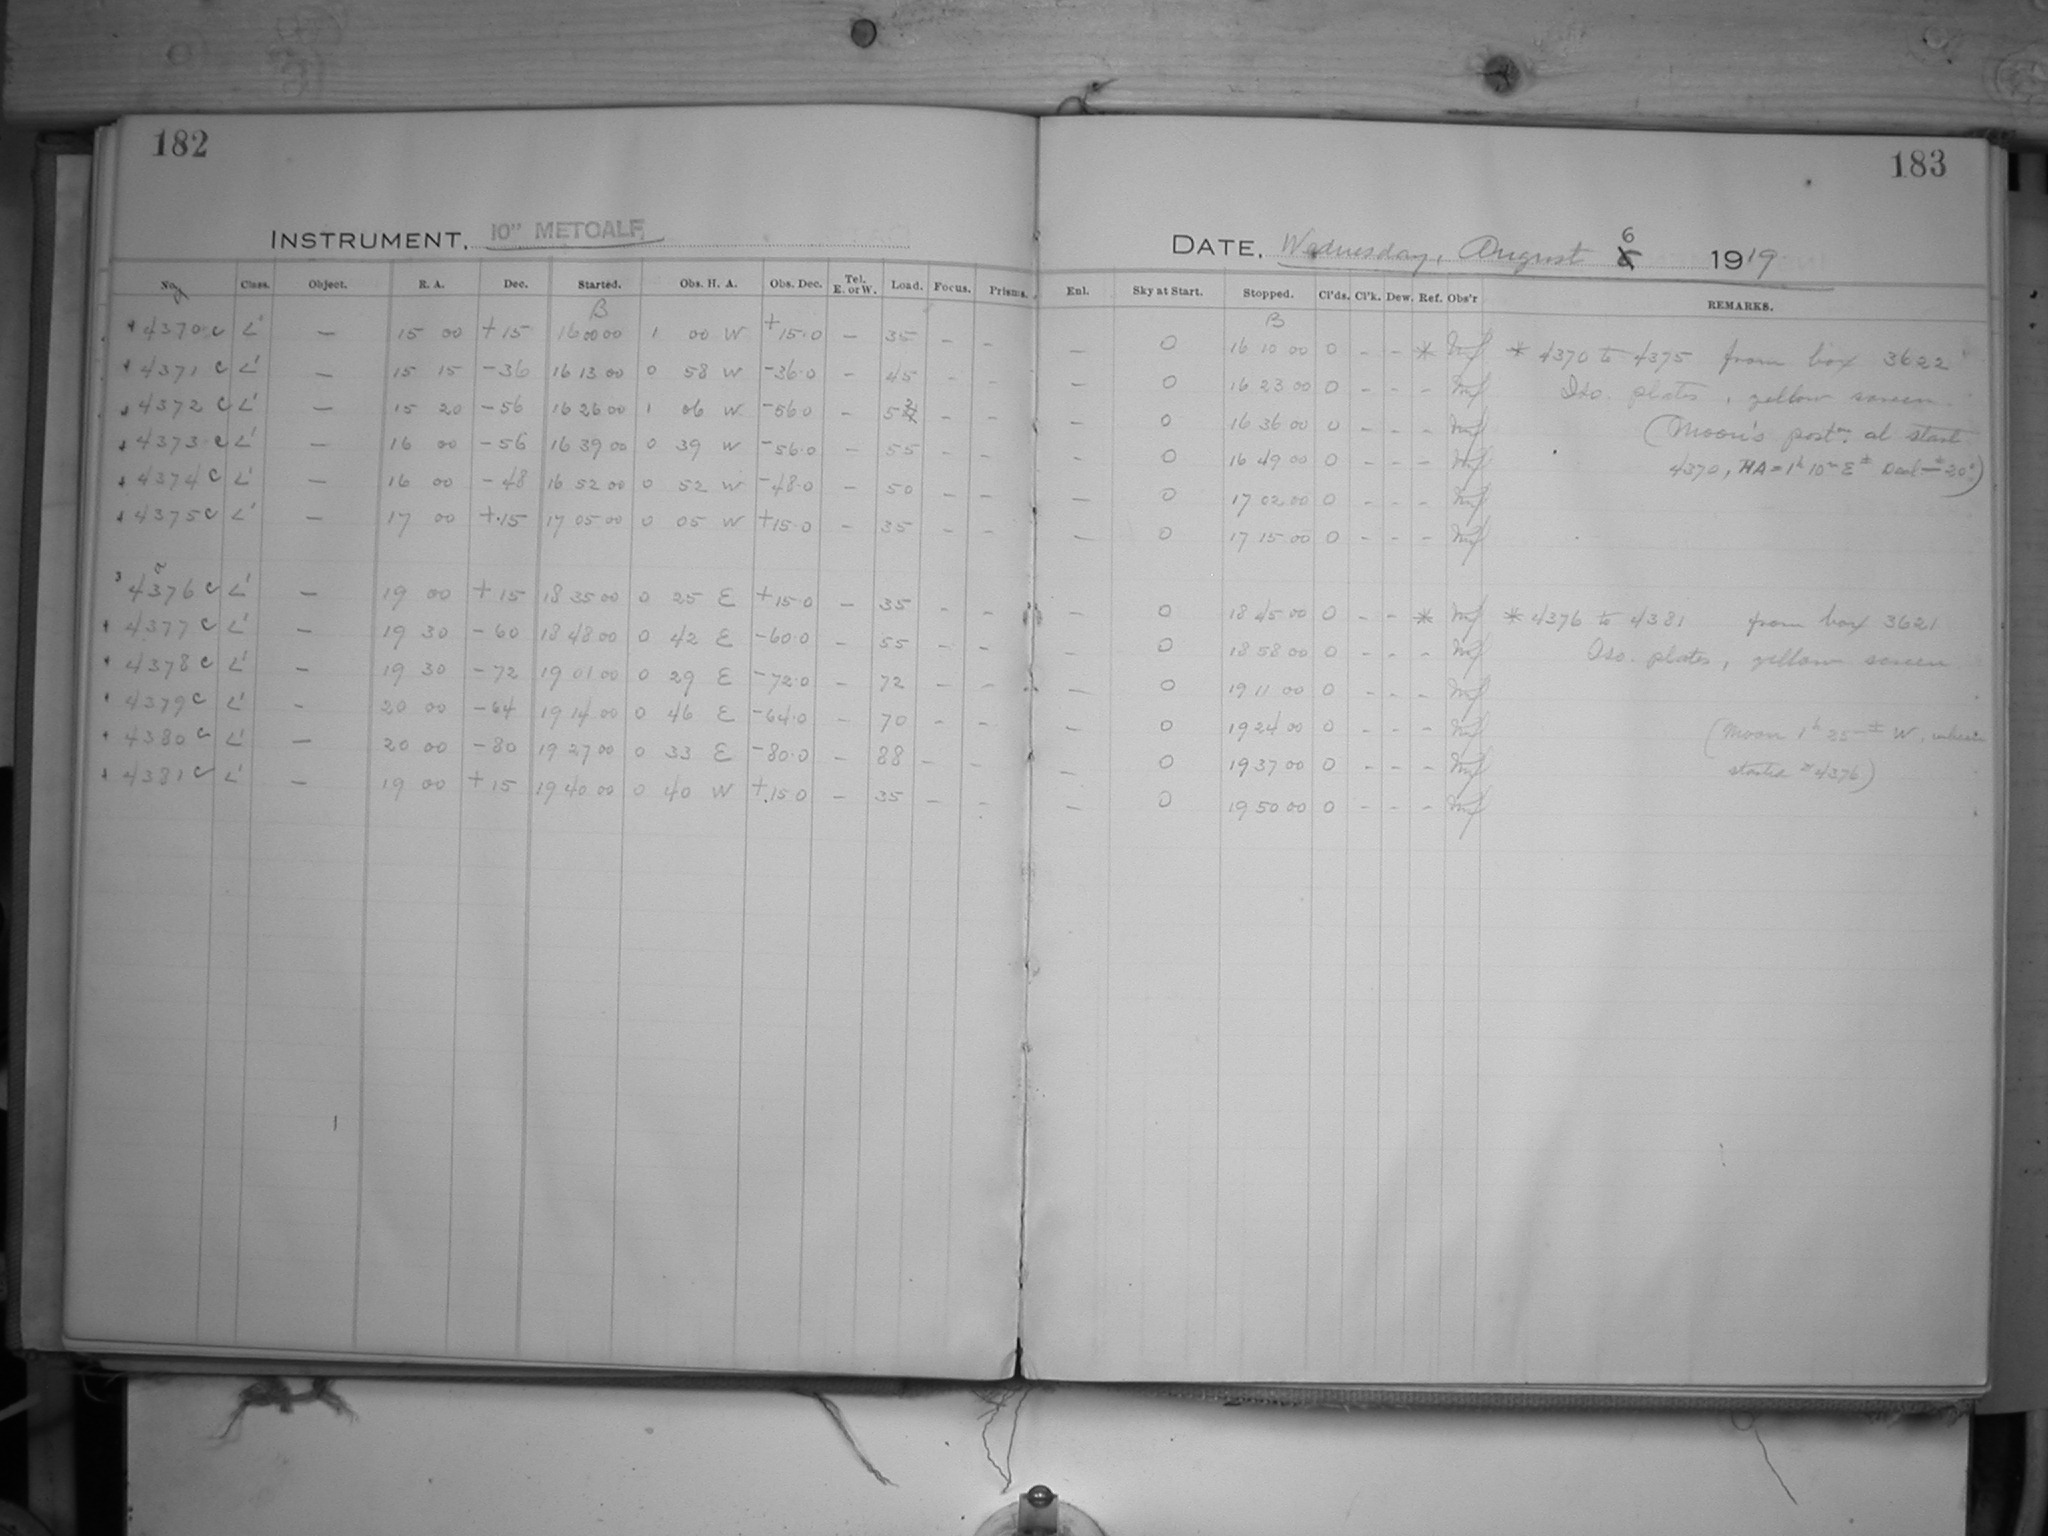 182
INSTRUMENT, 10" METCALF
No. Class. Object. R. A. Dec. Started. Obs. H. A. Obs. Dec. Tel. E. or W. Load. Focus. Prisms.
B
4370 c L' — 15 00 +15 16 00 00 1 00 W +15.0 — 35 – –
4371 c L' — 15 15 -36 16 13 00 0 58 W -36.0 – 45 – –
4372 c L' — 15 20 -56 16 26 00 1 06 W -56.0 – – –
4373 c L' — 16 00 -56 16 39 00 0 39 W -56.0 – 55 – –
4374 c L' — 16 00 -48 16 52 00 0 52 W -48.0 – 50 – –
4375 c L' — 17 00 +15 17 05 00 0 05 W +15.0 – 35 – –
4376 c L' — 19 00 +15 18 35 00 0 25 E +15.0 – 35 – –
4377 c L' – 19 30 -60 18 48 00 0 42 E -60.0 – 55 – –
4378 c L' – 19 30 -72 19 01 00 0 29 E -72.0 – 72 – –
4379 c L' - 20 00 -64 19 14 00 0 46 E -64.0 – 70 – –
4380 c L' — 20 00 -80 19 27 00 0 33 E -80.0 – 88 – –
4381 c L' — 19 00 +15 19 40 00 0 40 W +15.0 – 35 – –
183
DATE, Wednesday, August 6 1919
Enl. Sky at Start. Stopped. Cl'ds. Cl'k. Dew. Ref. Obs'r REMARKS.
B
— 0 16 10 00 0 - - * * 4370 to 4375 from box 3622
— 0 16 23 00 0 - - - Iso. plates, yellow screen.
— 0 16 36 00 0 - - - (Moon's postn. at start
— 0 16 49 00 0 - - - 4370, HA = 1h 10m E ± Decl -20°±)
— 0 17 02 00 0 - - -
— 0 17 15 00 0 - - -
— 0 18 45 00 0 - - * * 4376 to 4381 from box 3621
— 0 18 58 00 0 - - - Iso. plates, yellow screen
— 0 19 11 00 0 - - -
— 0 19 24 00 0 - - - (Moon 1h 25m ± W, when
— 0 19 37 00 0 - - - started #4376)
— 0 19 50 00 0 - - -